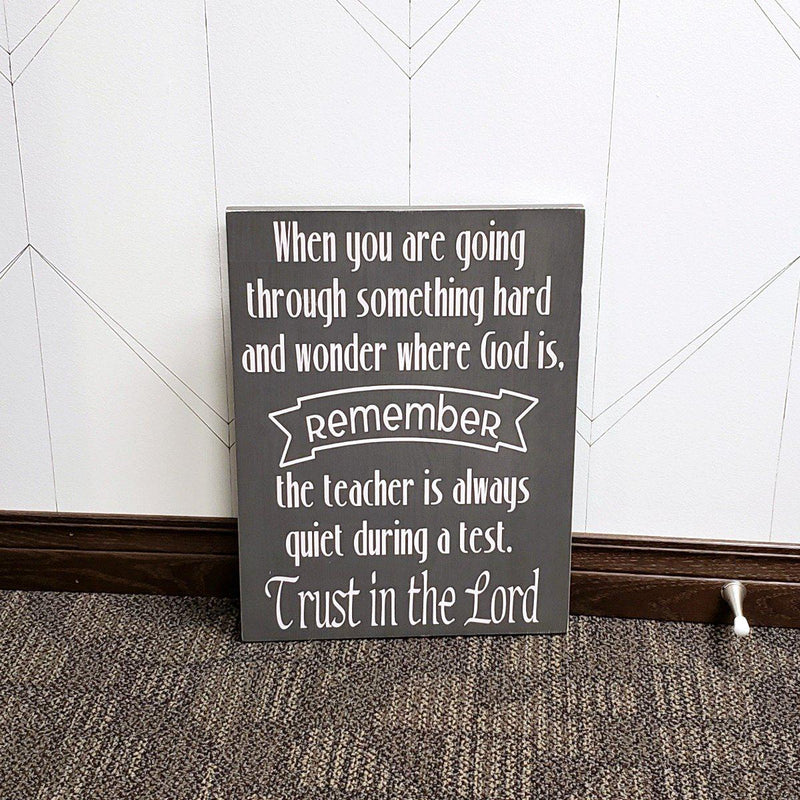 When you are going
through something hard
and wonder where God is,
Remember
the teacher is always
quiet during a test.
Trust in the Lord